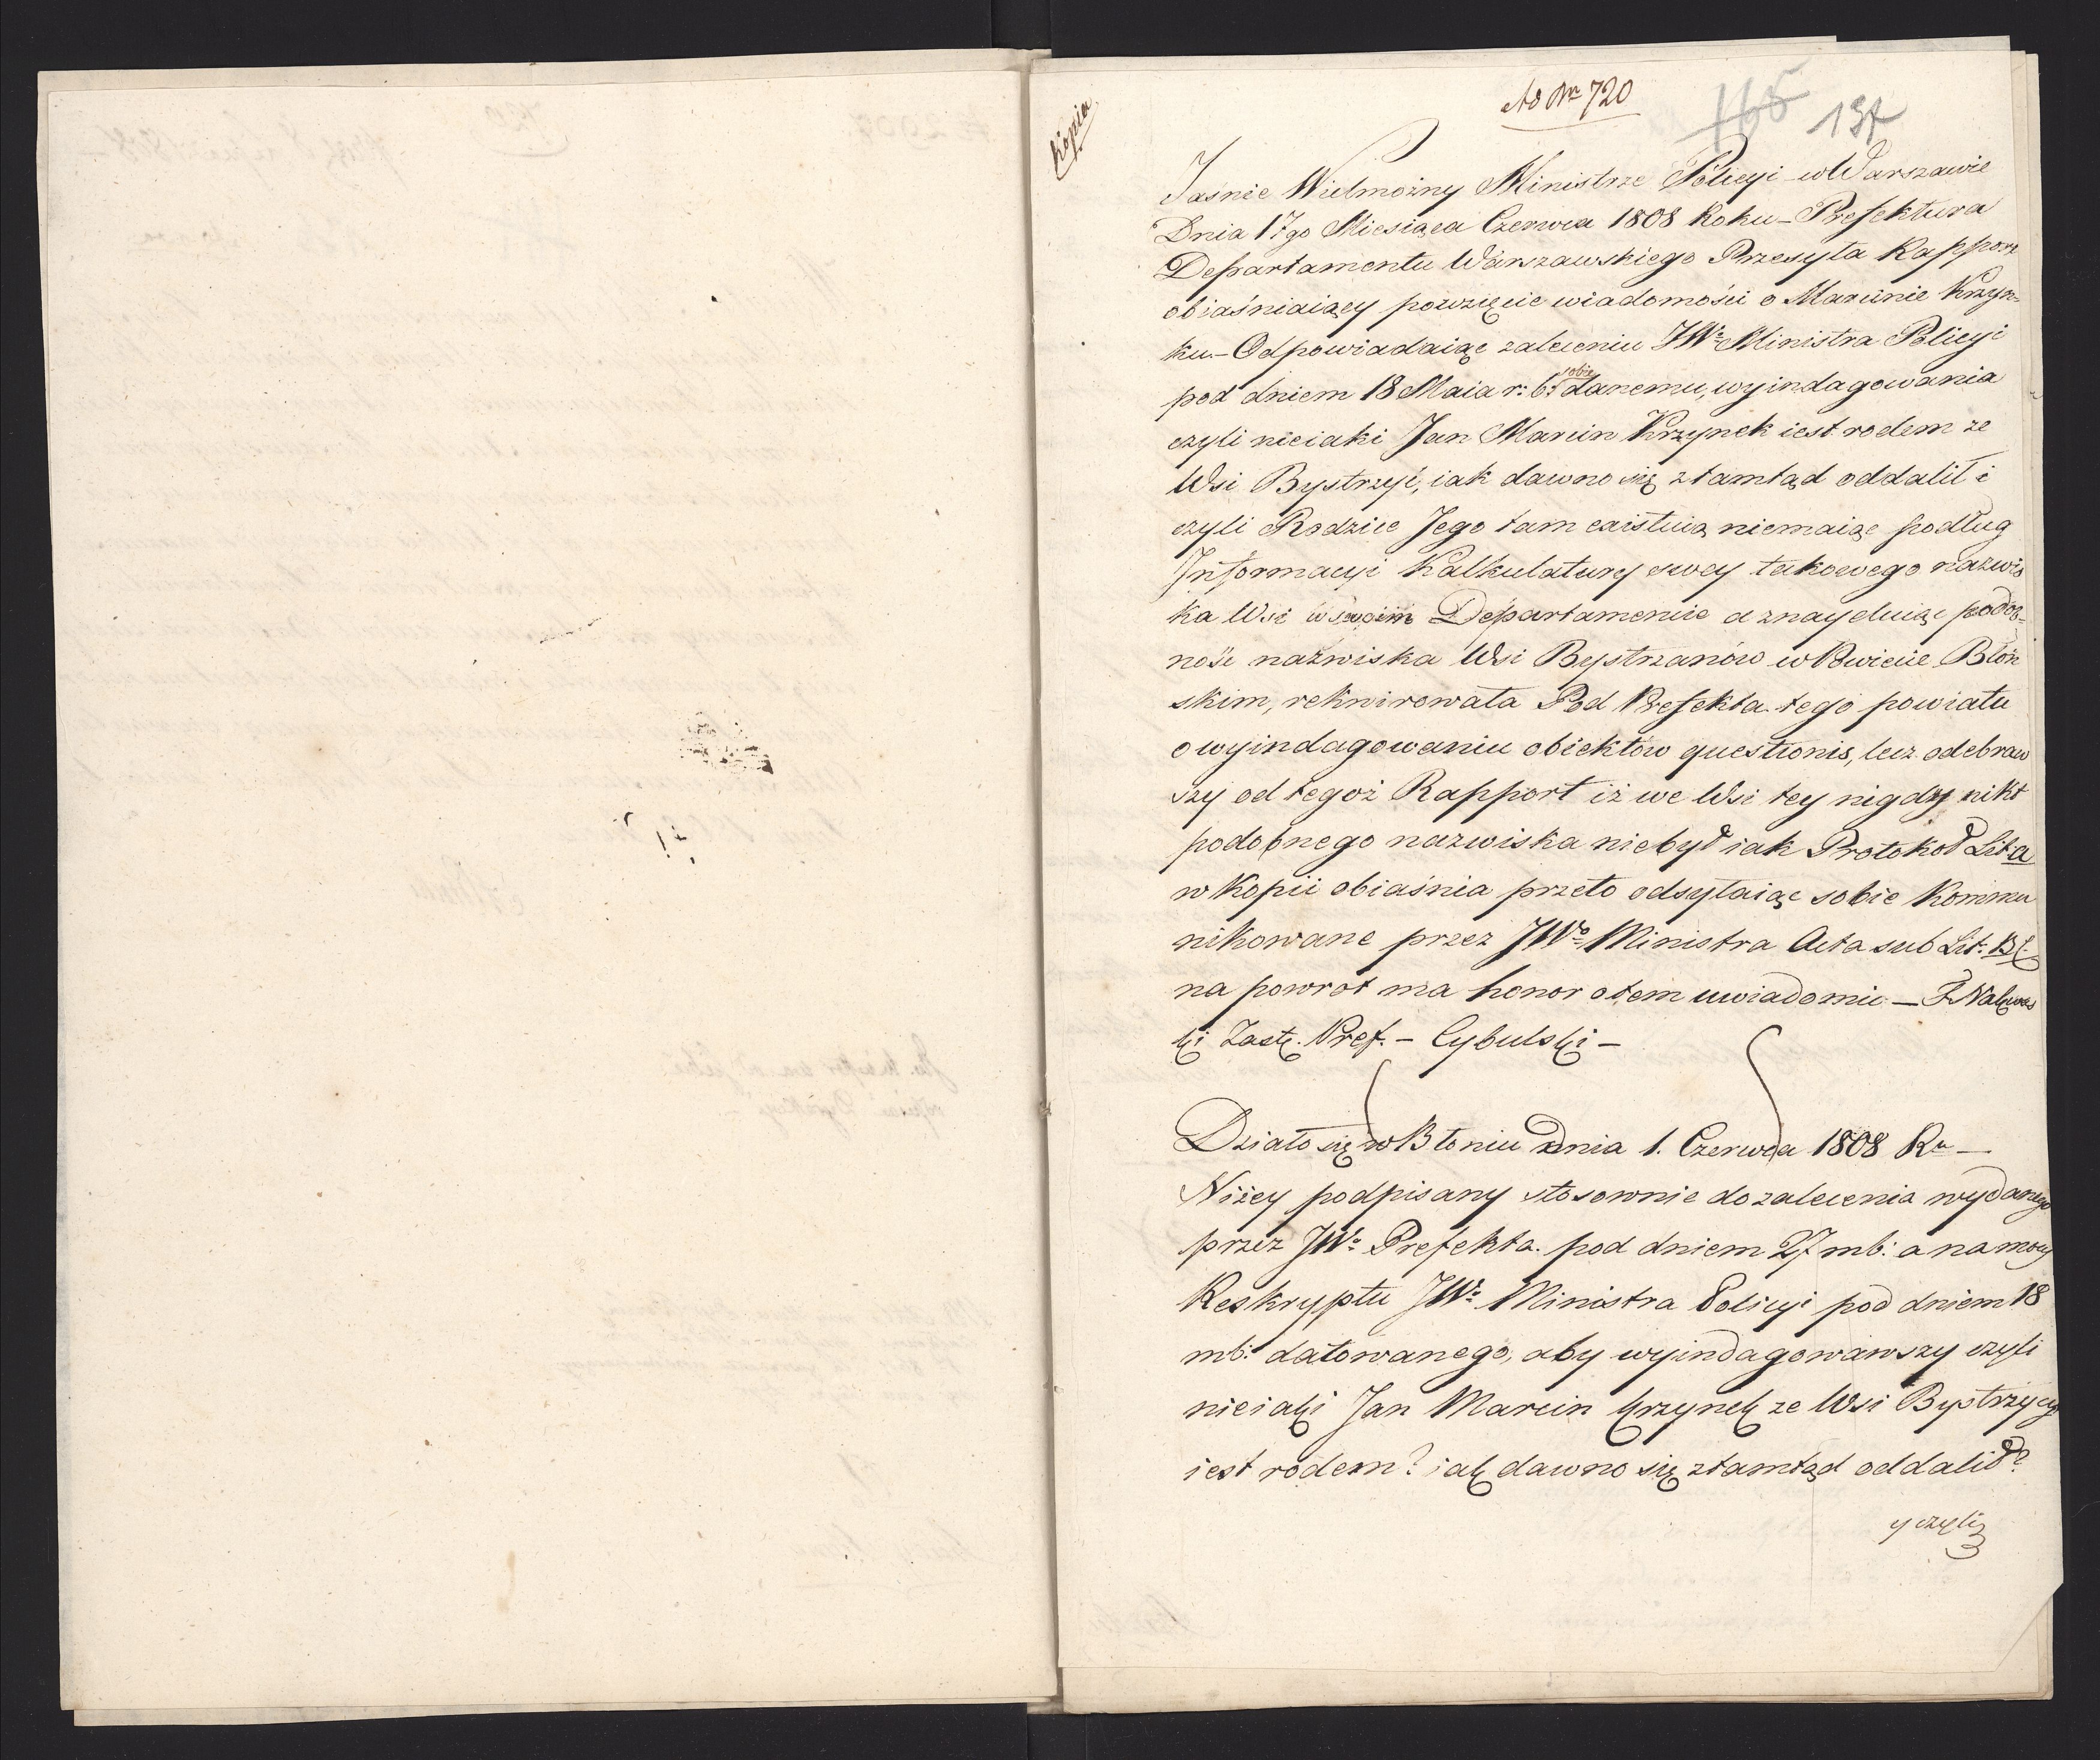 Kopia
Ad Nr 720
165 137
Jaśnie Wielmożny Ministrze Policyi w Warszawie
Dnia 17go Miesiąca Czerwca 1808 Roku – Prefektura
Departamentu Warszawskiego Przesyła Rapport
obiaśniaiący powzięcie wiadomości o Marcinie Krzyn=
ku – Odpowiadaiąc zaleceniu JWo Ministra Policyi
pod dniem 18 Maia r: b: sobie danemu, wyindagowania
czyli nieiaki Jan Marcin Krzynek iest rodem ze
Wsi Bystrzyć, iak dawno się ztamtąd oddalił i
czyli Rodzice Jego tam existuią niemaiąc podług
Informacyi Kalkulatury swey takowego nazwis
ka Wsi w swoim Departamencie a znayduiąc podob=
ność nazwiska Wsi Bystrzanów w Powiecie Błoń
skim, rekwirowała Pod Prefekta tego powiatu
o wyindagowaniu obiektów questionis, lecz odebraw
szy od tegoż Rapport iż we Wsi tey nigdy nikt
podobnego nazwiska niebył iak Protokoł Lit: a
w Kopii obiaśnia przeto odsyłaiąc sobie Kommu
nikowane przez JWo Ministra Acta sub Lit: B
na powrot ma honor otem uwiadomić – F. Nakwas
ki Zastę. Pref. – Cybulski –
Działo się w Błoniu dnia 1. Czerwca 1808 Ru –
Niżey podpisany stosownie do zalecenia wydanego
przez JWo Prefekta pod dniem 27 mb: a na mocy
Reskryptu JWo Ministra Policyi pod dniem 18
mb: datowanego, aby wyindagowawszy czyli
nieiaki Jan Marcin Krzynek ze Wsi Bystrzycy
iest rodem? iak dawno się ztamtąd oddalił?
y czyli